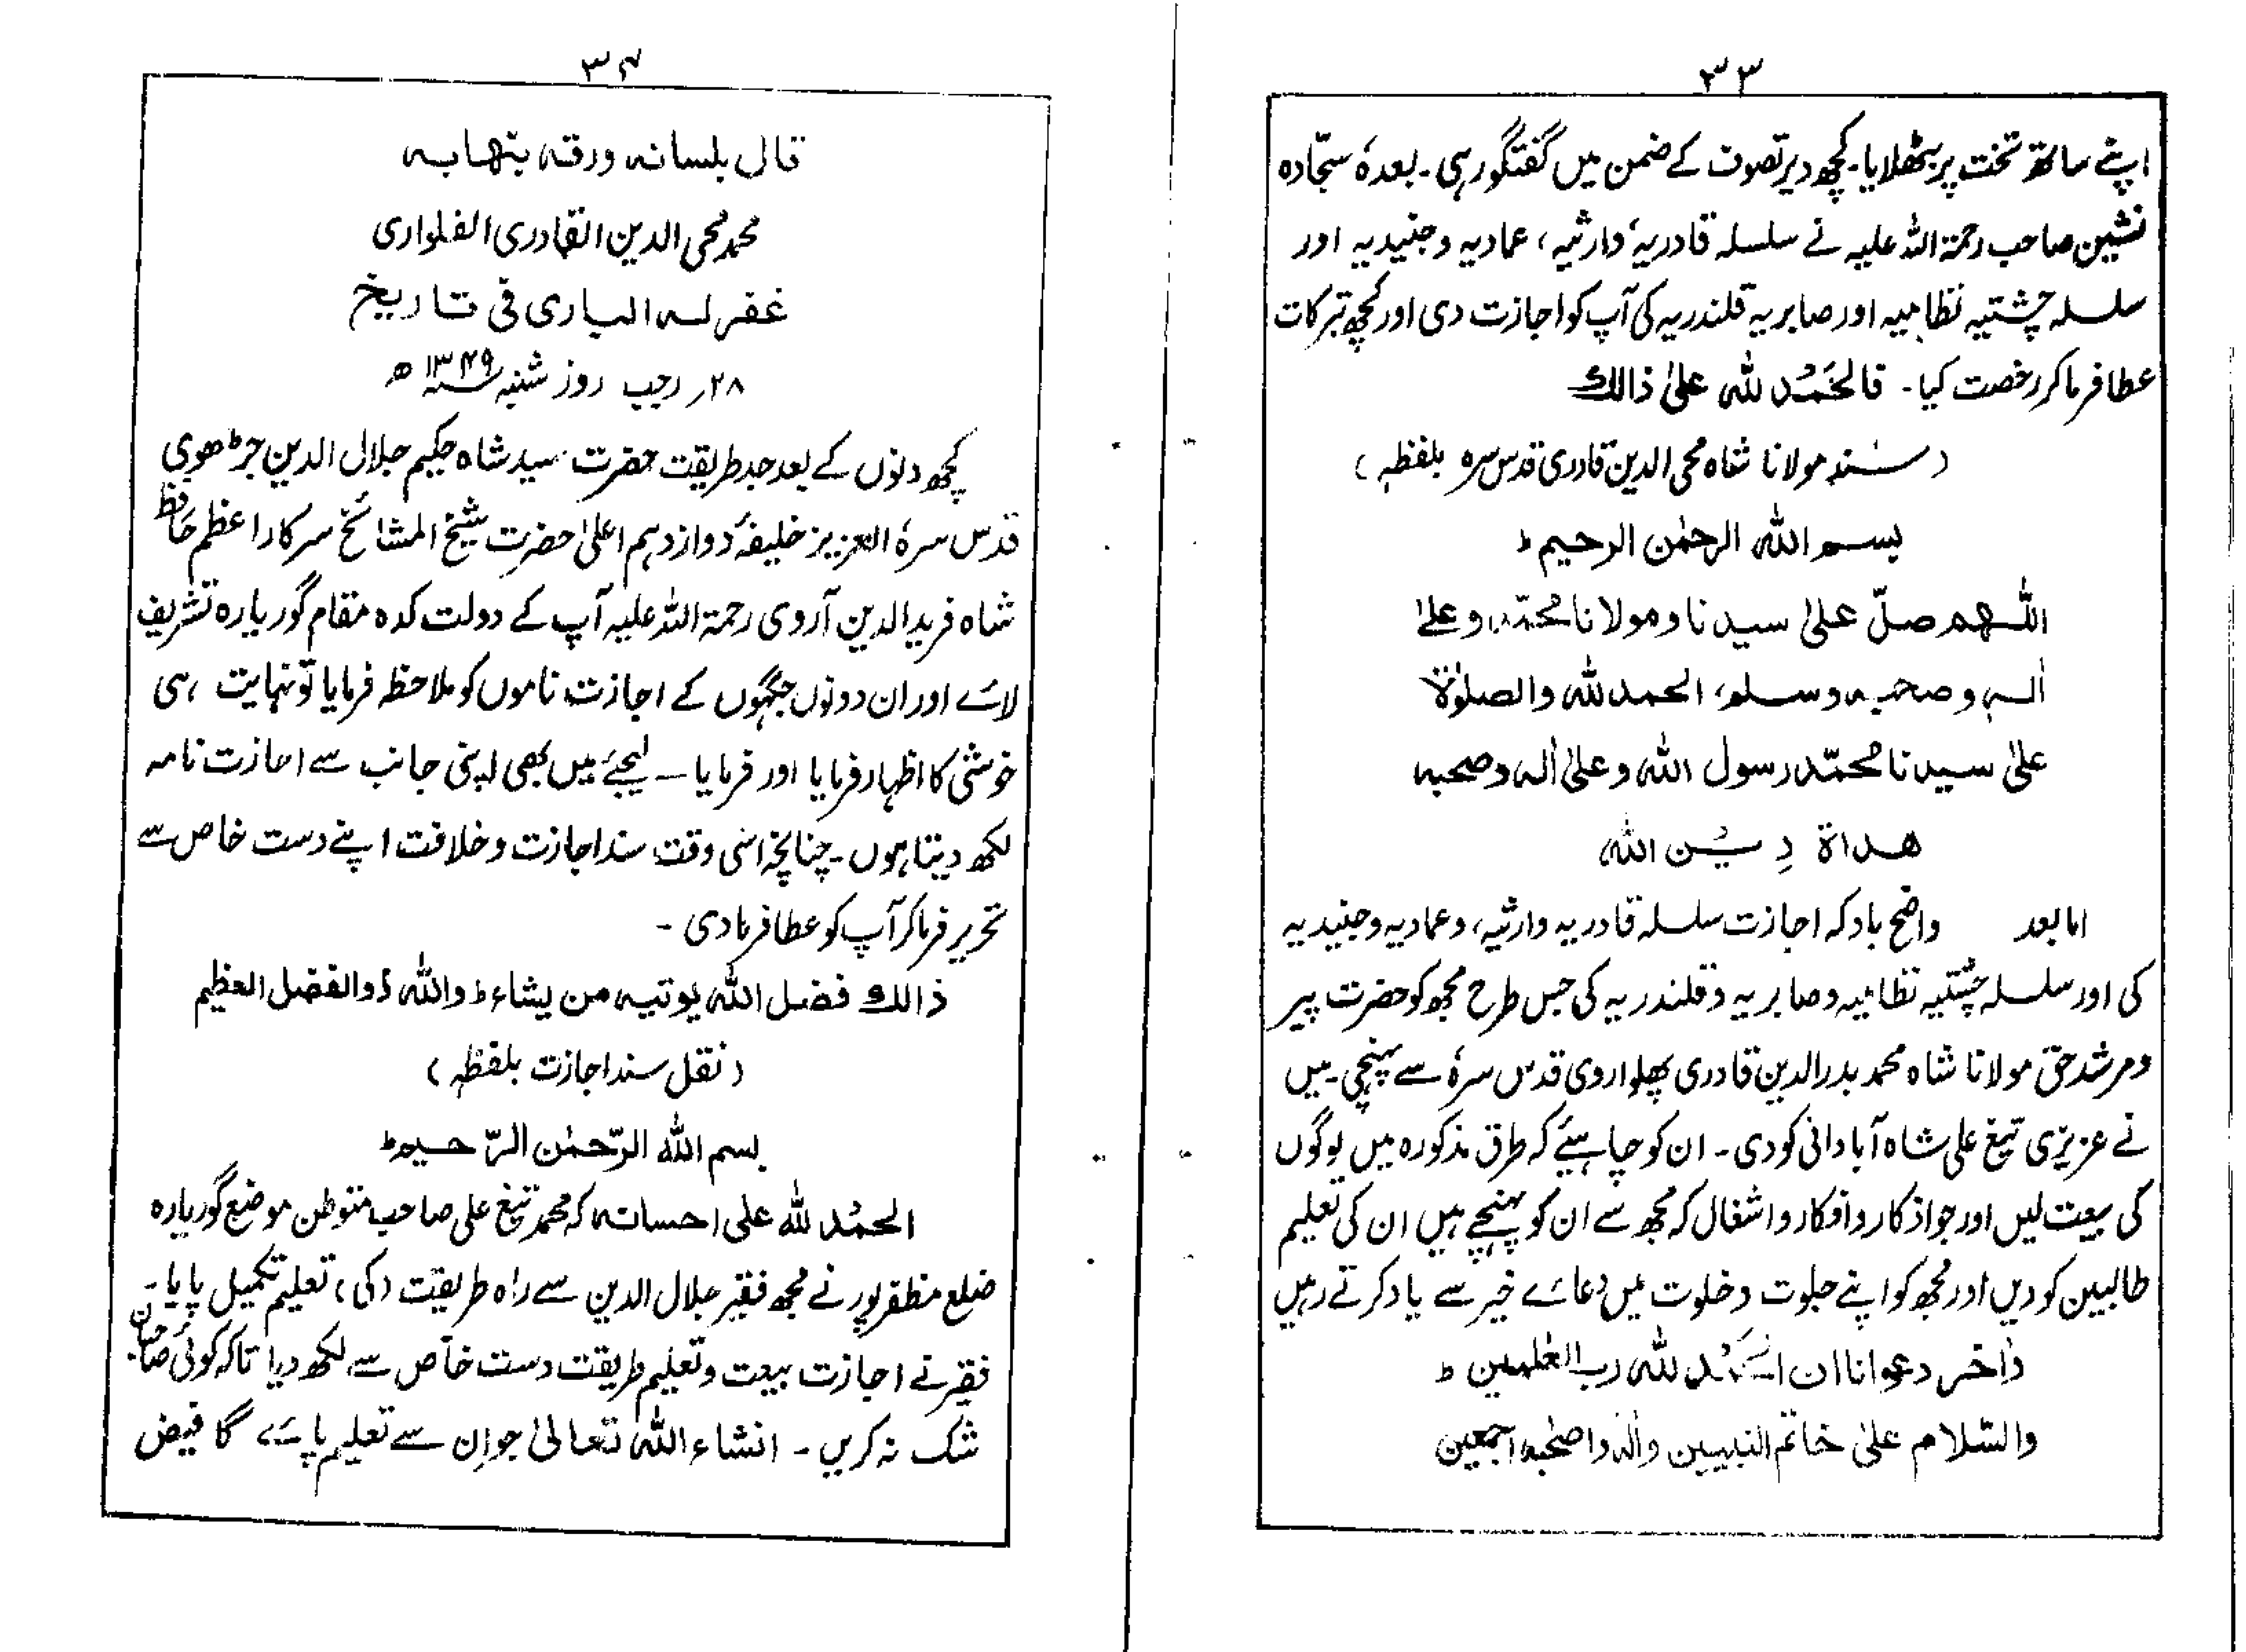 ۳۳
اپنے ساتھ تخت پر بٹھلایا۔ کچھ دیر تصوف کے ضمن میں گفتگو رہی۔ بعدہٗ سجّادہ
نشین صاحب رحمۃ اللہ علیہ نے سلسلہ قادریہ، وارثیہ، عمادیہ و جنیدیہ اور
سلسلہ چشتیہ نظامیہ اور صابریہ قلندریہ کی آپ کو اجازت دی اور کچھ تبرکات
عطا فرما کر رخصت کیا۔ فالحَمْدُ للہ علیٰ ذالک
(سند مولانا شاہ محی الدین قادری قدس سرہ بلفظہٖ)
بسم اللہ الرحمٰن الرحیم ط
اللّٰھم صلّ علیٰ سیدنا و مولانا محمّد و علیٰ
اٰلہٖ و صحبہ وسلم، الحمد للہ والصلوٰۃ
علیٰ سیدنا محمّد رسول اللہ و علیٰ اٰلہ و صحبہ
ھداۃ دِیْن اللہ
اما بعد واضح باد کہ اجازت سلسلہ قادریہ وارثیہ، و عمادیہ و جنیدیہ
کی اور سلسلہ چشتیہ نظامیہ و صابریہ و قلندریہ کی جس طرح مجھ کو حضرت پیر
و مرشد حق مولانا شاہ محمد بدر الدین قادری پھلواروی قدس سرہٗ سے پہنچی۔ میں
نے عزیزی تیغ علی شاہ آبادانی کو دی۔ ان کو چاہیئے کہ طرق مذکورہ میں لوگوں
کی بیعت لیں اور جو اذکار و افکار و اشغال کہ مجھ سے ان کو پہنچے ہیں ان کی تعلیم
طالبین کو دیں اور مجھ کو اپنے جلوت و خلوت میں دعائے خیر سے یاد کرتے رہیں
واٰخر دعوانا ان الحَمْد للہ رب العٰلمین ط
والسّلام علیٰ خاتم النبیین واٰلہ واصحٰبہ اجمعین
۳۴
قال بلسانہ ورقہ بنھابہ
محمد محی الدین القادری الفلواری
غفر لہ الباری فی تاریخ
۲۸؍ رجب روز شنبہ سنہ ۱۳۴۹ ھ
کچھ دنوں کے بعد جد طریقت حضرت سید شاہ حکیم جلال الدین جڑھوی
قدس سرہٗ العزیز خلیفۂ دوازدہم اعلیٰ حضرت شیخ المشائخ سرکار اعظم حافظ
شاہ فرید الدین آروی رحمۃ اللہ علیہ آپ کے دولت کدہ مقام گوریارہ تشریف
لائے اور ان دونوں جگہوں کے اجازت ناموں کو ملاحظہ فرمایا تو نہایت ہی
خوشی کا اظہار فرمایا اور فرمایا — لیجئے میں بھی اپنی جانب سے اجازت نامہ
لکھ دیتا ہوں۔ چنانچہ اسی وقت سند اجازت و خلافت اپنے دست خاص سے
تحریر فرما کر آپ کو عطا فرما دی۔
ذالک فضل اللہ یوتیہ من یشاء ط واللہ ذوالفضل العظیم
(نقل سند اجازت بلفظہٖ)
بسم اللہ الرّحمٰن الرّحیم ط
الحمْد للہ علی احسانہ کہ محمد تیغ علی صاحب متوطن موضع گوریارہ
ضلع مظفرپور نے مجھ فقیر جلال الدین سے راہ طریقت (کی) تعلیم تکمیل پایا۔
فقیر نے اجازت بیعت و تعلیم طریقت دست خاص سے لکھ دیا تاکہ کوئی صاحبان
شک نہ کریں۔ انشاء اللہ تعالیٰ جو ان سے تعلیم پائے گا فیض